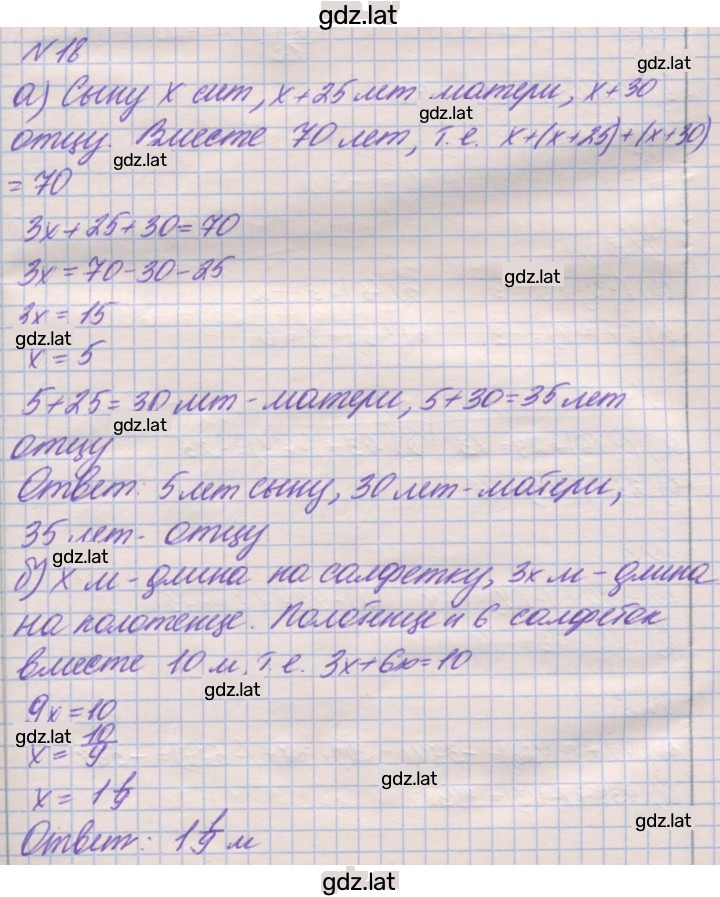 gdz.lat
№ 18
gdz.lat
а) Сыну x лет, x+25 лет матери, x+30
gdz.lat
отцу. Вместе 70 лет, т.е. x+(x+25)+(x+30)
gdz.lat
= 70
3x+25+30=70
3x=70-30-25
gdz.lat
3x = 15
gdz.lat
x = 5
5+25=30 лет - матери, 5+30=35 лет
gdz.lat
отцу
Ответ: 5 лет сыну, 30 лет - матери,
35 лет - отцу
gdz.lat
б) x м - длина на салфетку, 3x м - длина
на полотенце. Полотенце и 6 салфеток
вместе 10 м, т.е. 3x+6x=10
gdz.lat
9x=10
gdz.lat
x = 10/9
gdz.lat
x = 1 1/9
gdz.lat
Ответ: 1 1/9 м
gdz.lat